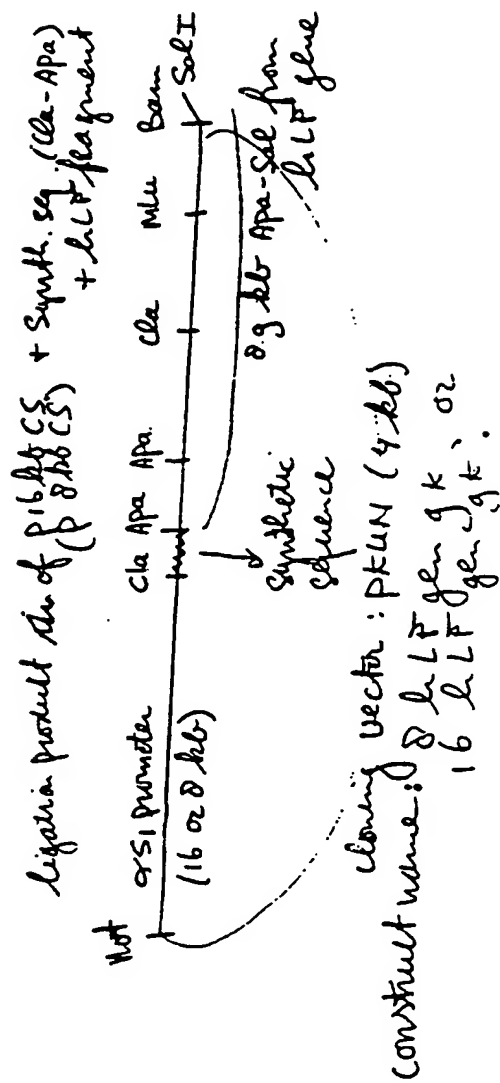 ligation product of p16kb CS + Synth. seq. (Cla-Apa)
(p 8 kb CS) + hLF fragment
Not
Cla
Apa
Apa.
Cla
Mlu
Bam
Sal I
αS1 promoter
(16 or 8 kb)
Synthetic
sequence
8.9 kb Apa-Sal from
hLF gene
cloning vector: pKUN (4 kb)
Construct name: 8 hLF gen 9k, or
16 hLF gen 9k.